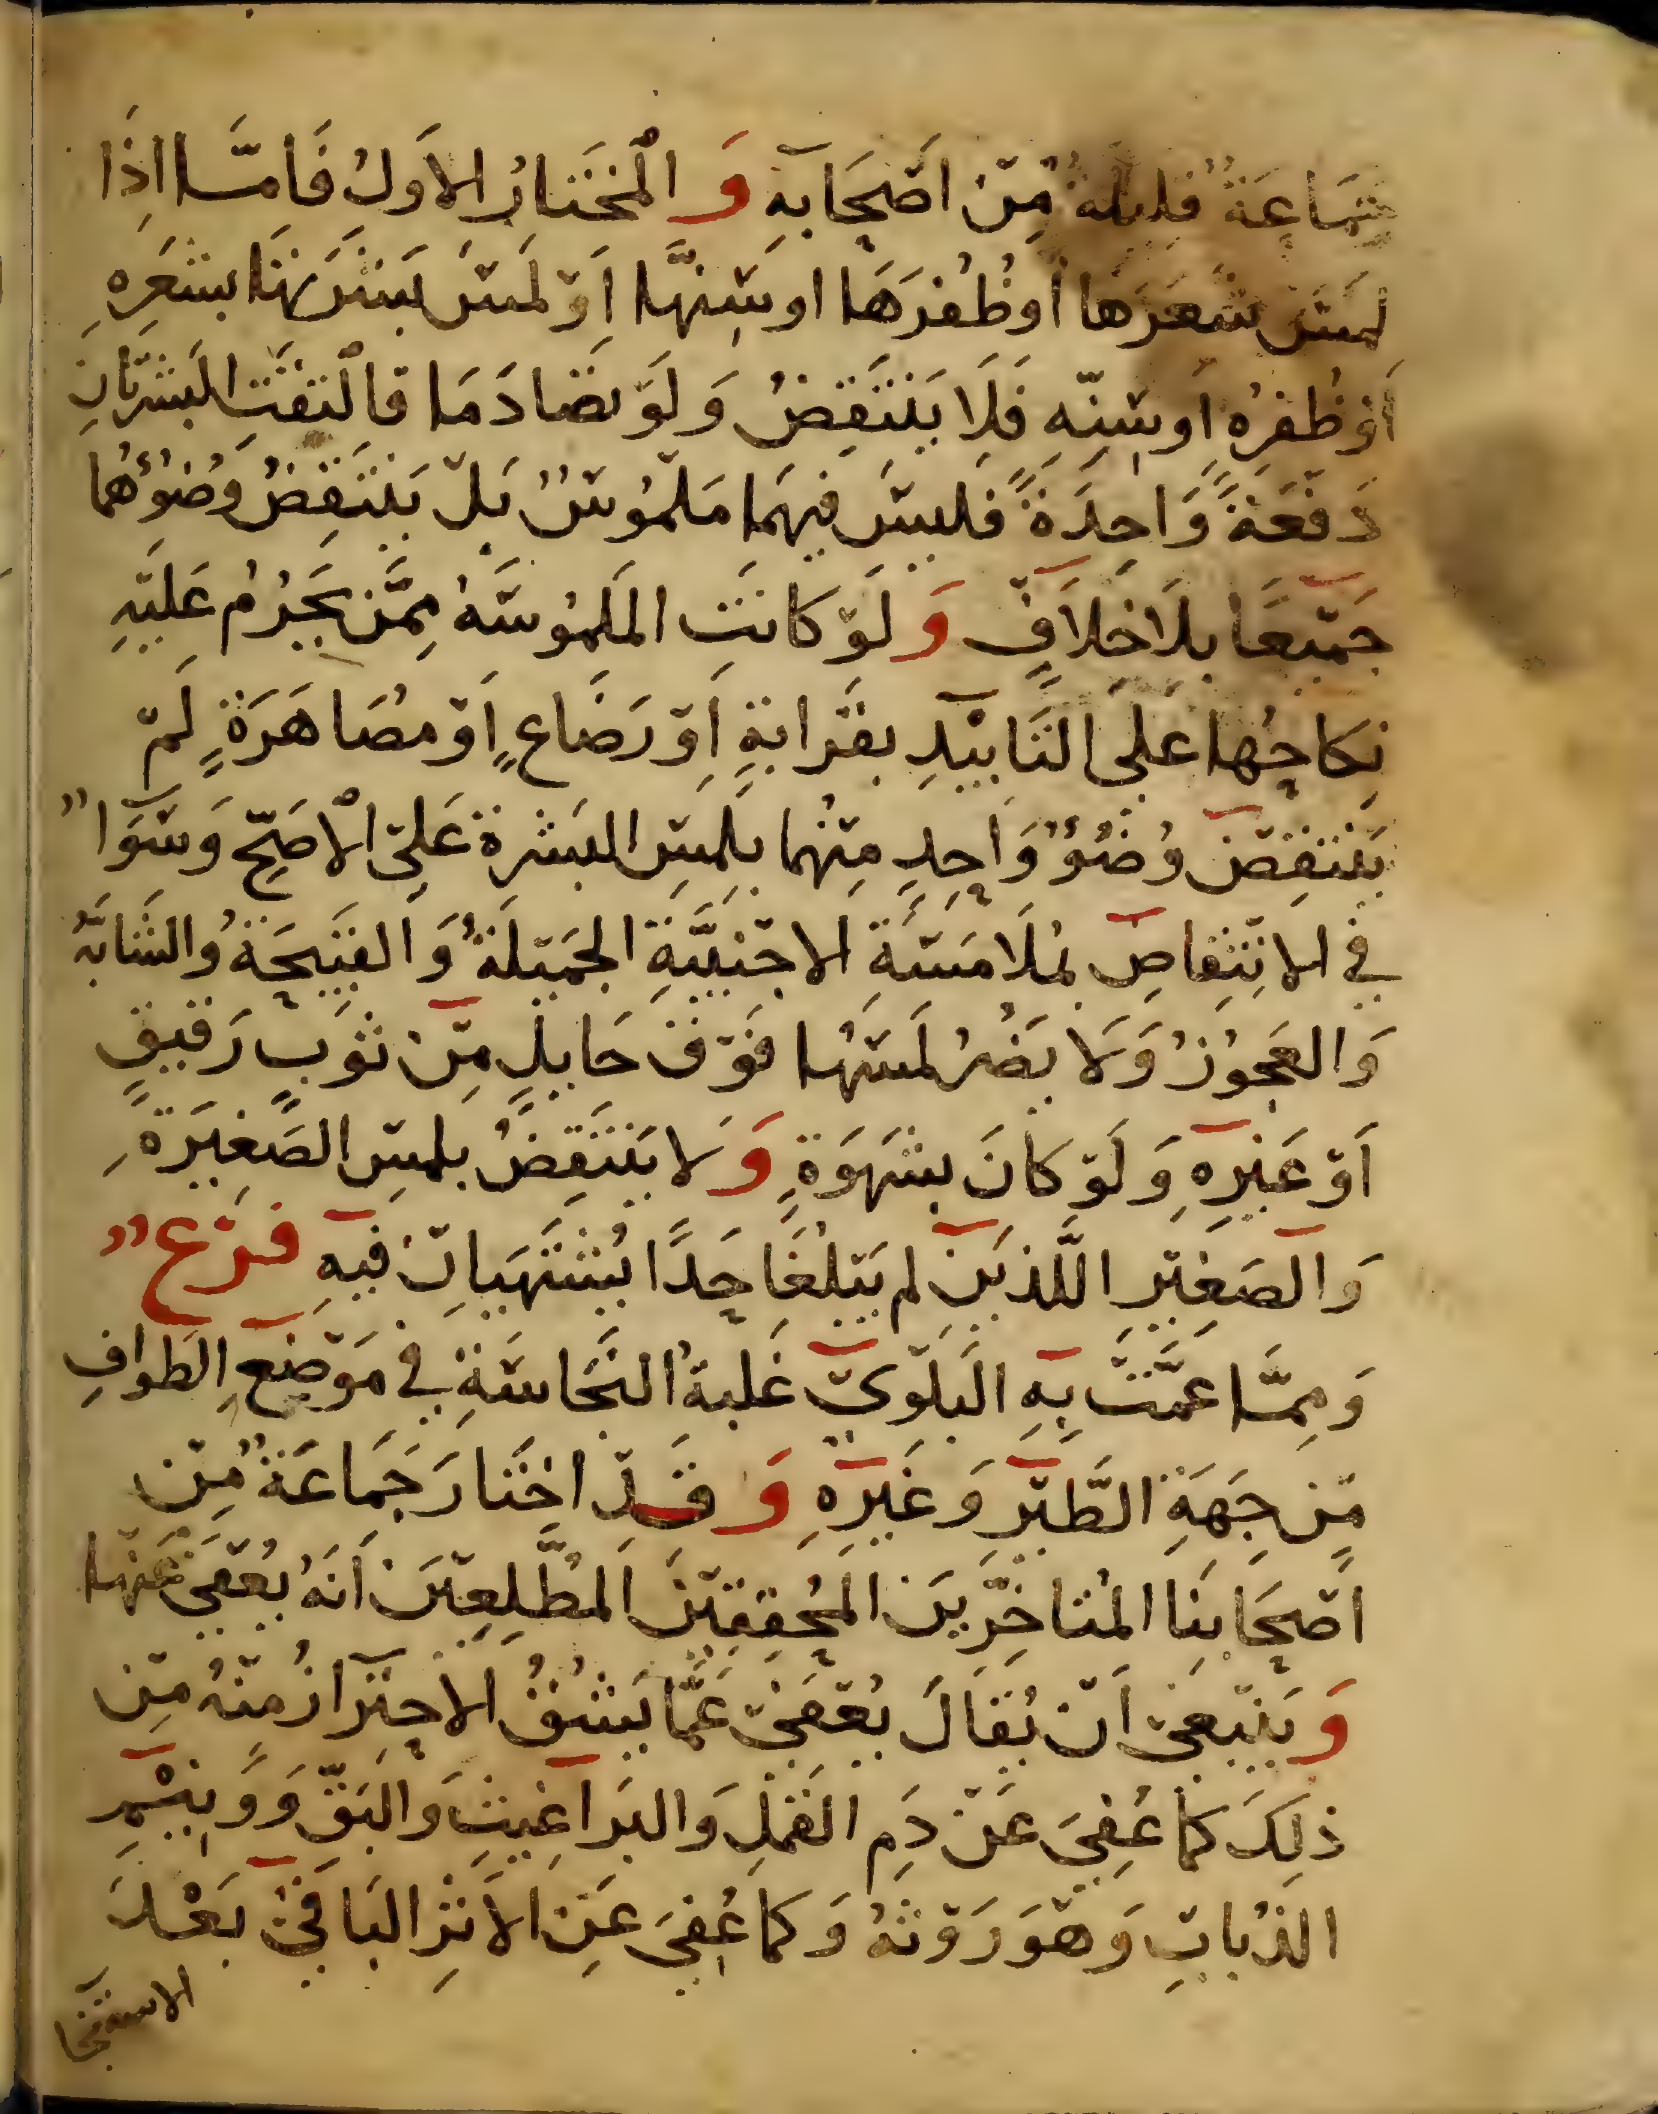 جَمَاعَةٌ قليلةٌ مِنْ اَصْحَابِهِ وَ الْمُخْتَارُ الاَولُ فَامَّا اذَا
لَمَسَ شَعَرَهَا اَوظُفْرَهَا اوسِنَّهَا اَوْ لَمَسَ بَشَرَتَهَا بشَعَرِهِ
اَوْظُفرِهِ اَوسِنِّهِ فَلَا يَنْتَقِضُ وَلَوْ تصَادَمَا فَالْتَقَتِ البَشَرَتَانِ
دَفْعَةً وَاحِدَةً فَليسَ فِيهِمَا مَلْمُوسٌ بَلْ يَنْتَقِضُ وُضُوْءُهُمَا
جَمِيْعًا بِلَا خِلَافٍ وَ لَوْ كانَتِ المَلمُوسَةُ مِمَّن يَحْرُمُ عَلَيْهِ
نِكَاحُها عَلى التَّابِيْدِ بقَرَابةٍ اَوْ رَضَاعٍ اَوْ مُصَاهَرَةٍ لَمْ
يَنْتَقِضْ وُضُوْءُ وَاحِدٍ مِنْهُما بلَمْسِ البَشَرة عَلَى الْاصَحِّ وَسَوَا
في الانْتِقَاصِ بمُلَامَسَةِ الاجْنَبِيَّةِ الجَمِيْلَةُ وَالقَبِيْحَةُ والشَابَّةُ
وَالعَجُوْزُ وَلَا يَضُرُ لَمسُهَا فَوْقَ حَايِلٍ مِّنْ ثَوْبٍ رَقِيْقٍ
اَوْ غَيْرِهِ وَلَوْ كَانَ بشَهْوَةٍ وَ لَا يَنْتَقِضُ بلَمسِ الصَّغِيْرَةِ
وَالصَغِيْرِ اللَّذيْنِ لم يَبْلُغَا حَدًا يُشْتَهَيَانِ فيهِ فَرْعٌ
وَمِمَّا عَمَّتْ بِهِ البَلْوى غَلَبةُ النَجَاسَةِ في مَوْضِعِ الطَوافِ
مِّنْ جِهَةِ الطَّيْرِ وَغَيْرِهِ وَ قَدِ اخْتَارَ جَمَاعَةٌ مِنْ
اَصْحَابِنَا المُتاخِّرِيْنَ المُحَقِقِيْنَ المُطَّلِعِيْنَ اَنَهُ يُعْفَى عَنْهَا
وَ يَنْبَغى اَنْ يُقَالَ يُعْفَى عَمَّا يَشُقُ الاحْتِرَازُ مِنْهُ مِنْ
ذلِكَ كمَا عُفِيَ عَنْ دَمِ القَمْلِ وَالبَرَاغِيثِ وَالبَقِّ وَوَنِيْمِ
الذُبابِ وَهْوَ رَوْثهُ وَكما عُفِيَ عَنِ الاَثَرِ البَاقِى بَعْدَ
الاستنجا